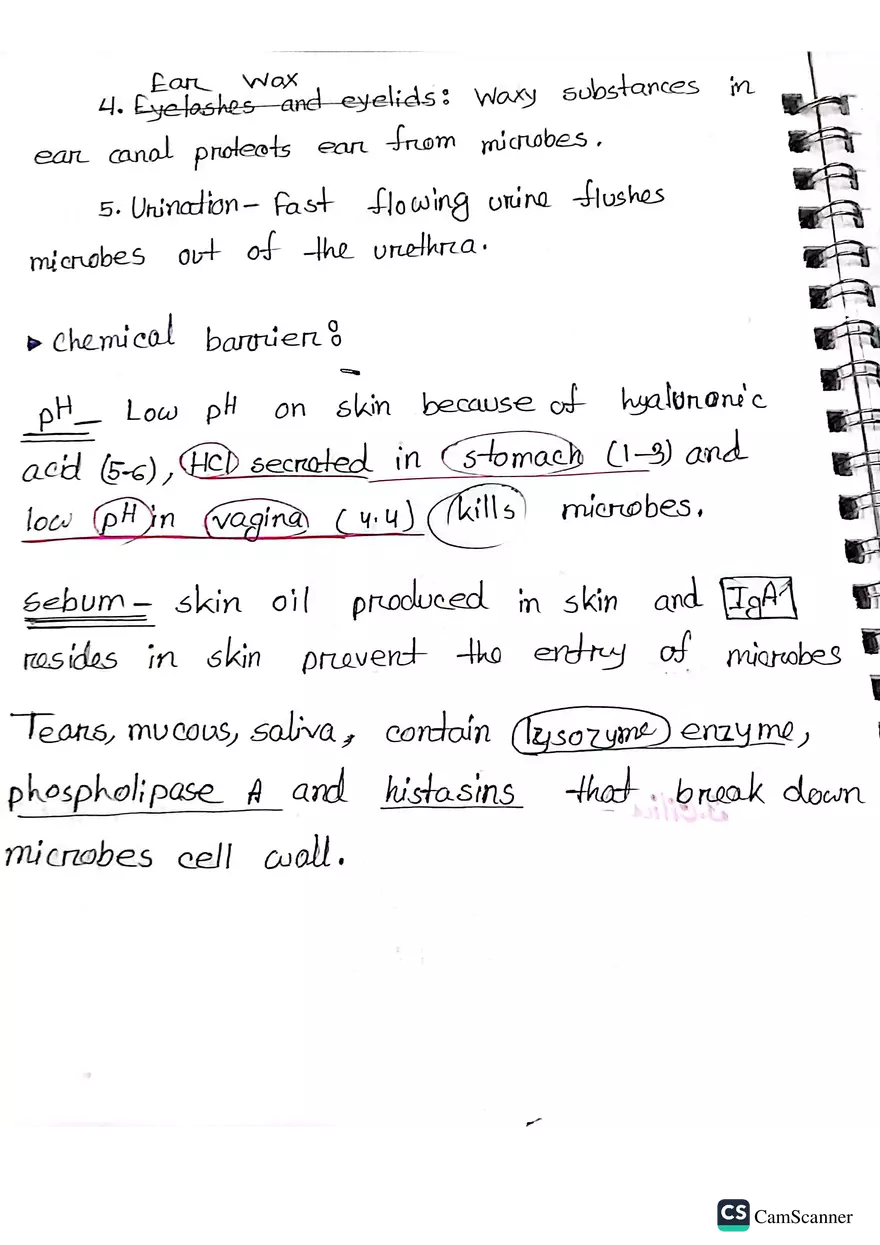 Ear Wax
4. Eyelashes and eyelids: Waxy substances in
ear canal protects ear from microbes.
5. Urination - Fast flowing urine flushes
microbes out of the urethra.
▸ Chemical barrier:
pH - Low pH on skin because of hyaluronic
acid (5-6), HCl secreted in stomach (1-3) and
low pH in vagina (4.4) kills microbes.
Sebum - skin oil produced in skin and IgA1
resides in skin prevent the entry of microbes
Tears, mucous, saliva, contain lysozyme enzyme,
phospholipase A and histasins that break down
microbes cell wall.
CS CamScanner